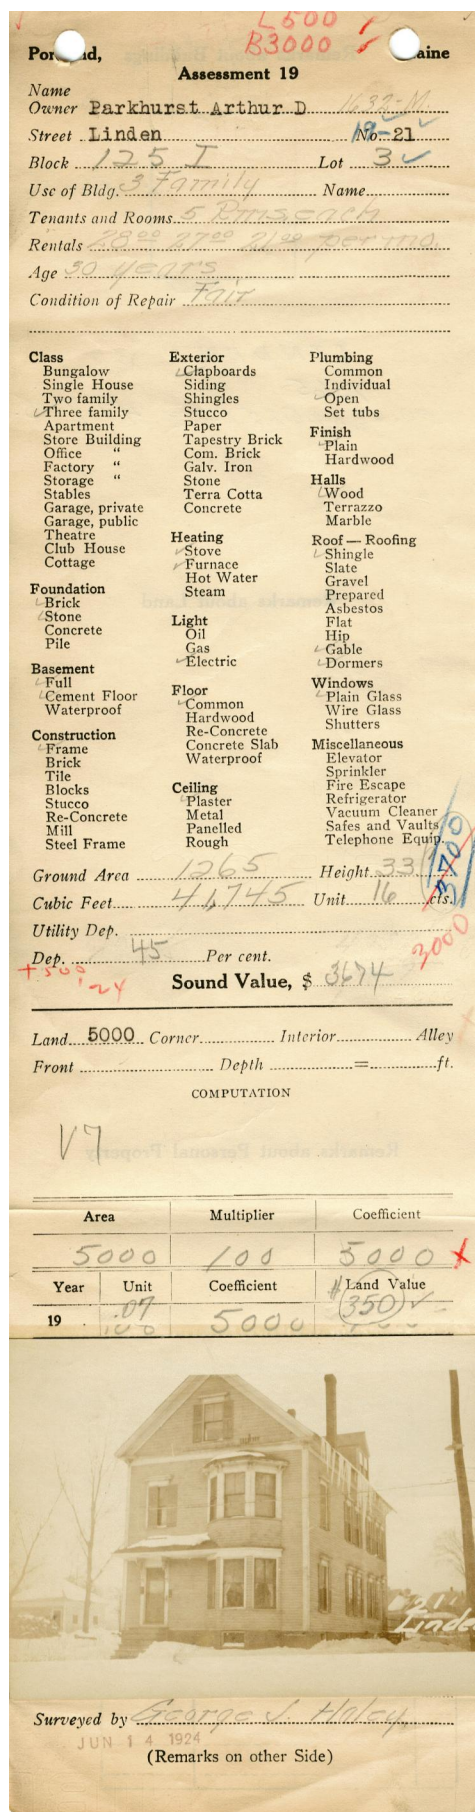 L500
B3000
Portland, Maine
Assessment 19
Name
Owner Parkhurst Arthur D 1632-M
Street Linden No. 19-21
Block 125 I Lot 3
Use of Bldg. 3 Family Name
Tenants and Rooms 5 Rms. each
Rentals 28.00 27.00 21.00 per mo.
Age 30 years
Condition of Repair Fair
Class
Bungalow
Single House
Two family
Three family
Apartment
Store Building
Office "
Factory "
Storage "
Stables
Garage, private
Garage, public
Theatre
Club House
Cottage
Foundation
Brick
Stone
Concrete
Pile
Basement
Full
Cement Floor
Waterproof
Construction
Frame
Brick
Tile
Blocks
Stucco
Re-Concrete
Mill
Steel Frame
Exterior
Clapboards
Siding
Shingles
Stucco
Paper
Tapestry Brick
Com. Brick
Galv. Iron
Stone
Terra Cotta
Concrete
Heating
Stove
Furnace
Hot Water
Steam
Light
Oil
Gas
Electric
Floor
Common
Hardwood
Re-Concrete
Concrete Slab
Waterproof
Ceiling
Plaster
Metal
Panelled
Rough
Plumbing
Common
Individual
Open
Set tubs
Finish
Plain
Hardwood
Halls
Wood
Terrazzo
Marble
Roof — Roofing
Shingle
Slate
Gravel
Prepared
Asbestos
Flat
Hip
Gable
Dormers
Windows
Plain Glass
Wire Glass
Shutters
Miscellaneous
Elevator
Sprinkler
Fire Escape
Refrigerator
Vacuum Cleaner
Safes and Vaults
Telephone Equip.
3700
Ground Area 1265 Height 33
Cubic Feet 41,745 Unit 16 cts.
Utility Dep.
3000
Dep. 45 Per cent.
+500, -24
Sound Value, $ 3674
Land 5000 Corner Interior Alley
Front Depth = ft.
COMPUTATION
V7
Area Multiplier Coefficient
5000 100 5000 x
Year Unit Coefficient Land Value
19 .07 5000 $350
21
Linden
Surveyed by George J. Haley
JUN 14 1924
(Remarks on other Side)